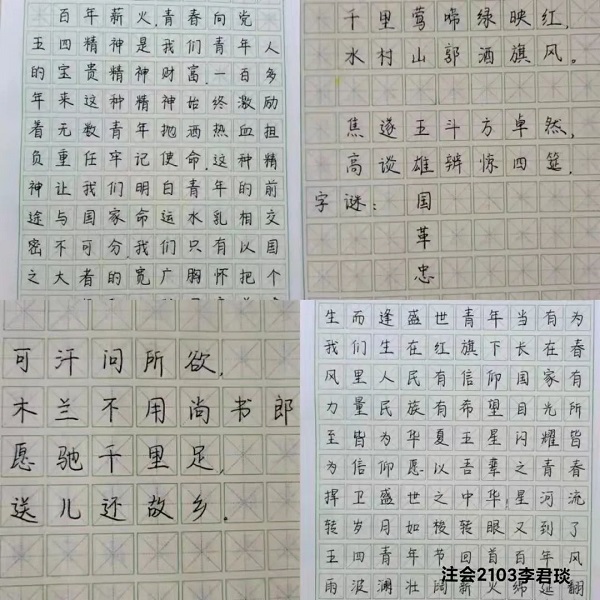 百年薪火青春向党
五四精神是我们青年人
的宝贵精神财富.一百多
年来这种精神始终激励
着无数青年抛洒热血担
负重任牢记使命.这种精
神让我们明白青年的前
途与国家命运水乳相交
密不可分.我们只有以国
之大者的宽广胸怀把个
千里莺啼绿映红,
水村山郭酒旗风。
焦遂五斗方卓然,
高谈雄辨惊四筵.
字谜:国
革
忠
可汗问所欲,
木兰不用尚书郎
愿驰千里足,
送儿还故乡.
生而逢盛世青年当有为
我们生在红旗下长在春
风里人民有信仰国家有
力量民族有希望目光所
至皆为华夏五星闪耀皆
为信仰愿以吾辈之青春
捍卫盛世之中华.星河流
转岁月如梭转眼又到了
五四青年节回首百年风
雨波澜壮阔薪火
注会2103李君琰